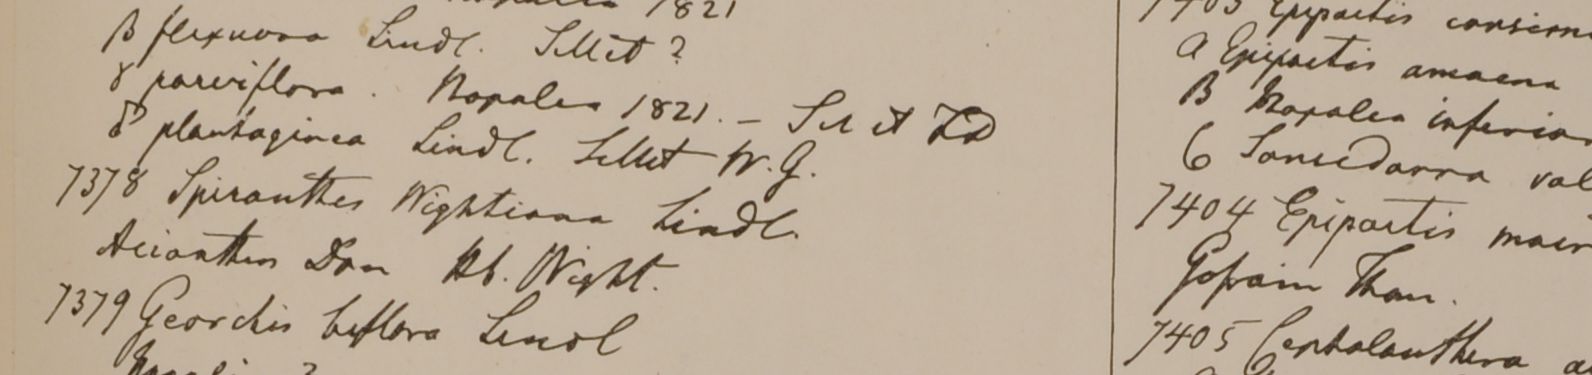 1821
β flexuosa Lindl. Sillet?
γ parviflora. Napalea 1821. — Sil et
δ plantaginea Lindl. Sillet W.G.
7378 Spiranthes Wightiana Lindl.
Acianthus Don Hb. Wight.
7379 Georchis biflora Lindl
7403 Epipactis
a Epipactis amoena
B Napalea inferior
6
7404 Epipactis
Gosain Than.
7405 Cephalanthera